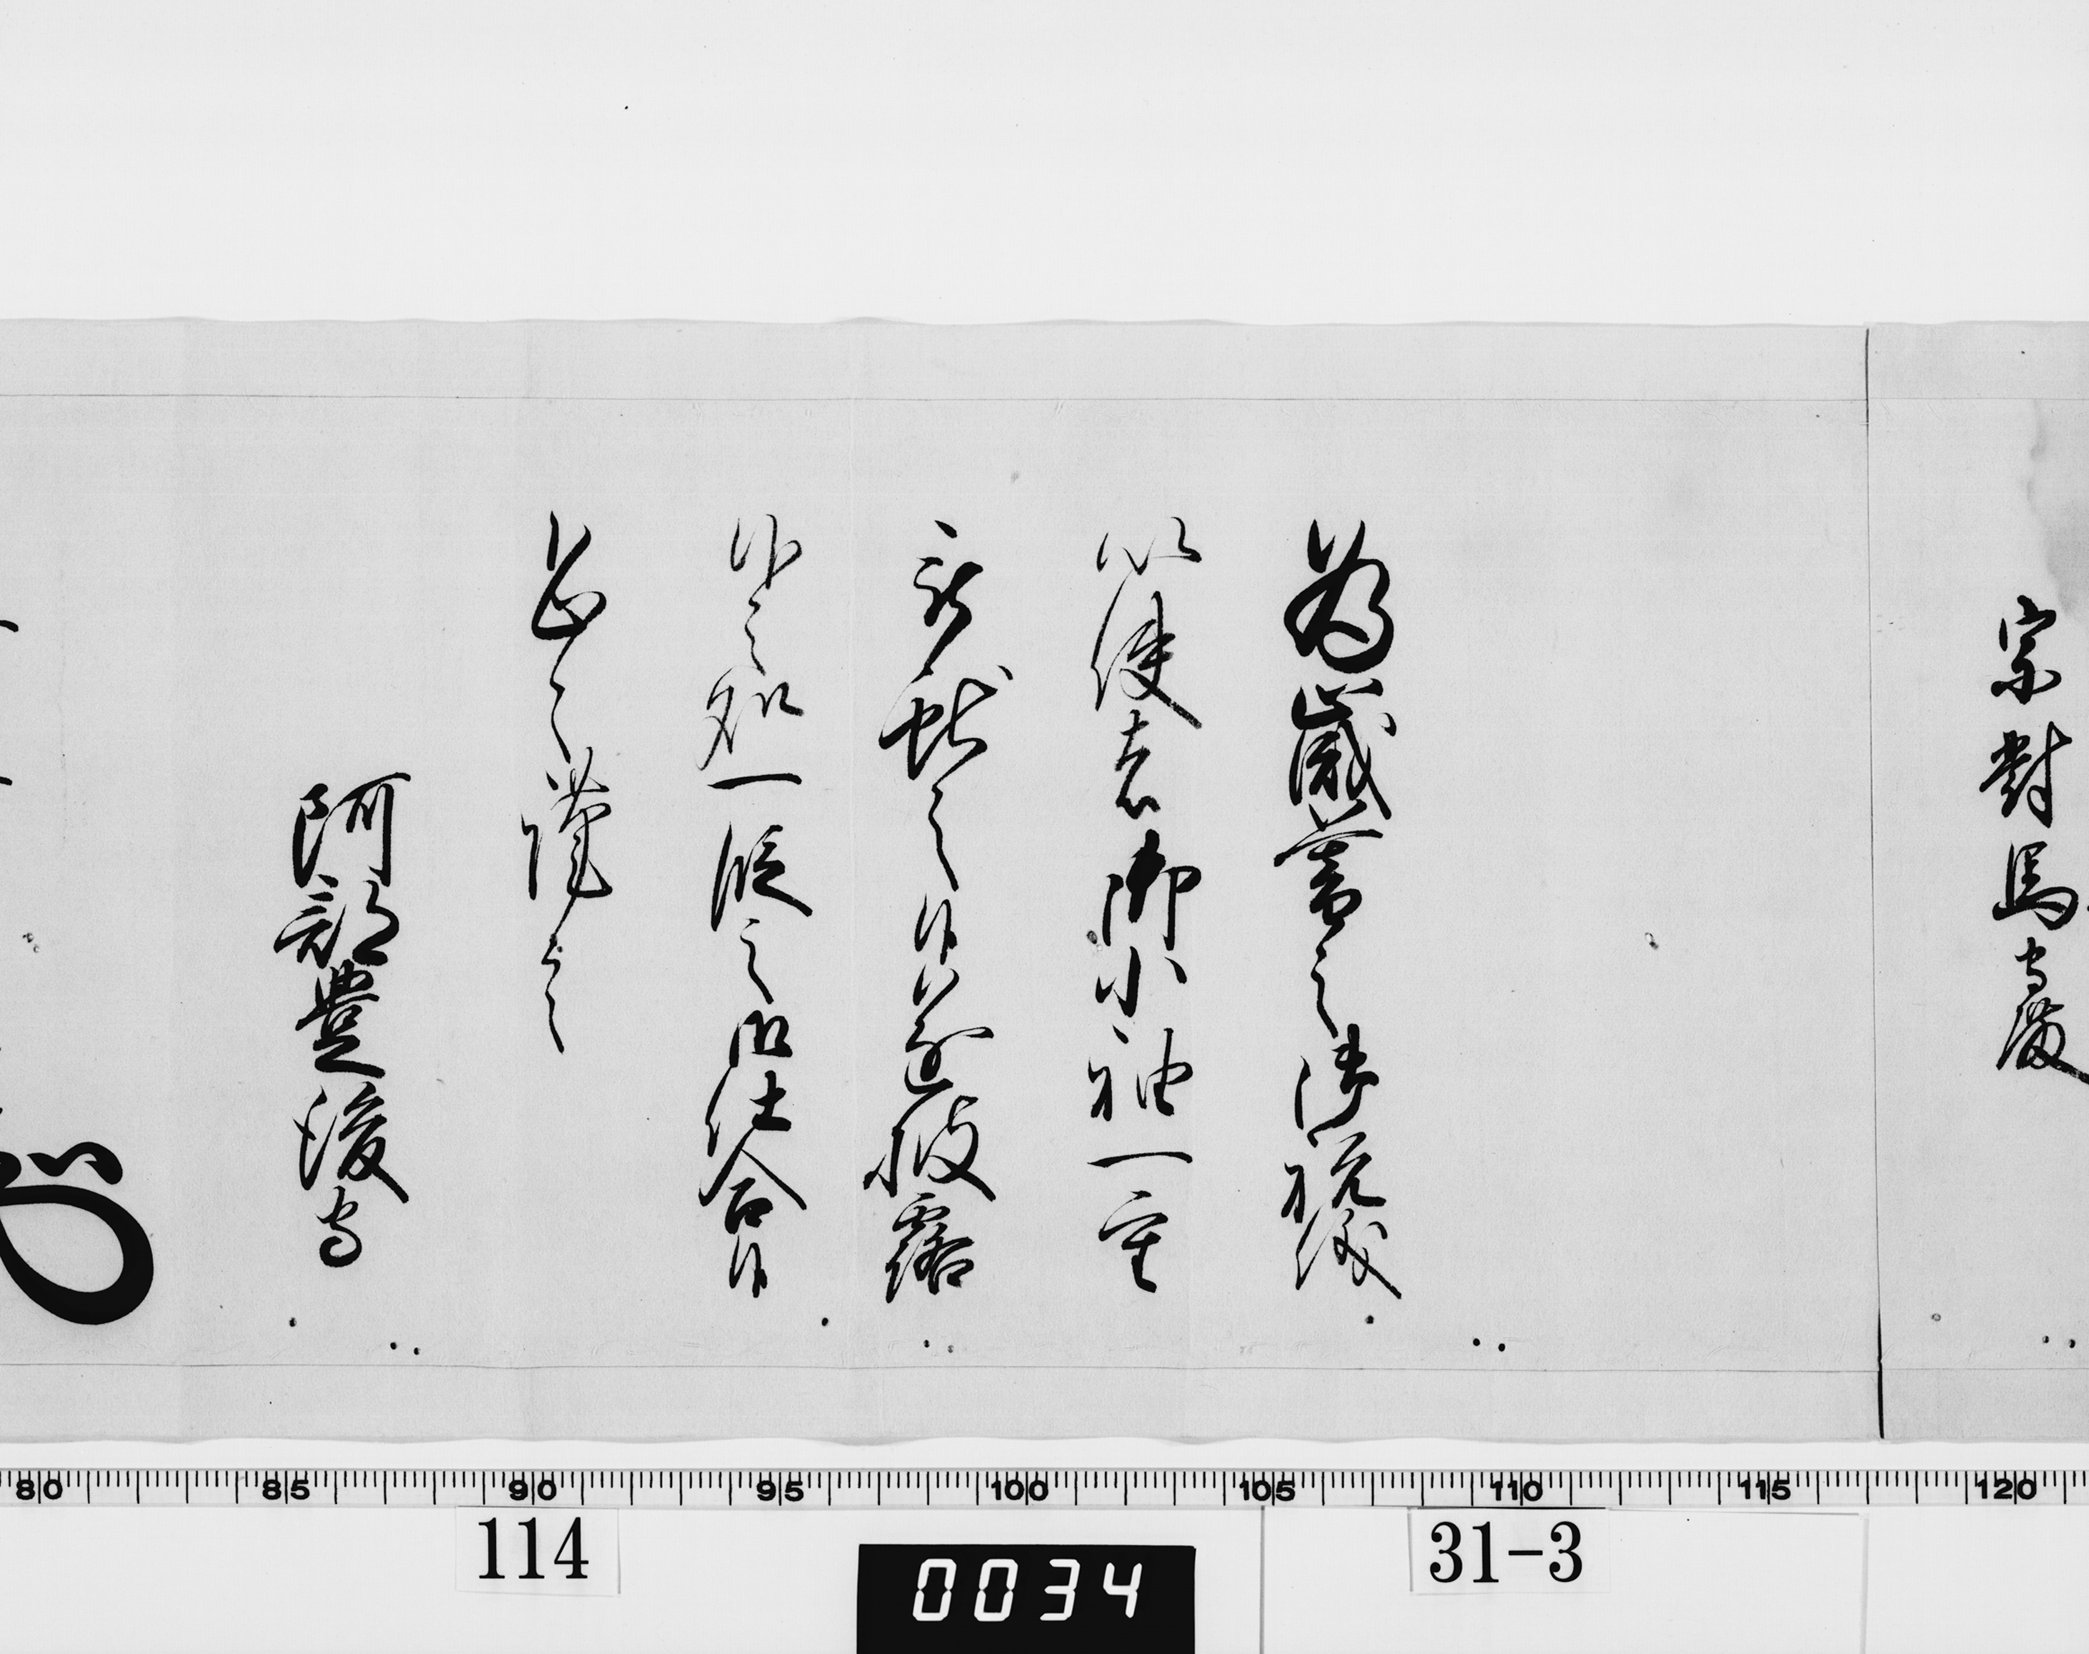 宗對馬守殿
為歳暮之御祝儀
以使者御小袖一重
被献之候遂披露
候之処一段之御仕合候
恐々謹言
阿部豊後守
80 85 90 95 100 105 110 115 120
114
0034
31-3